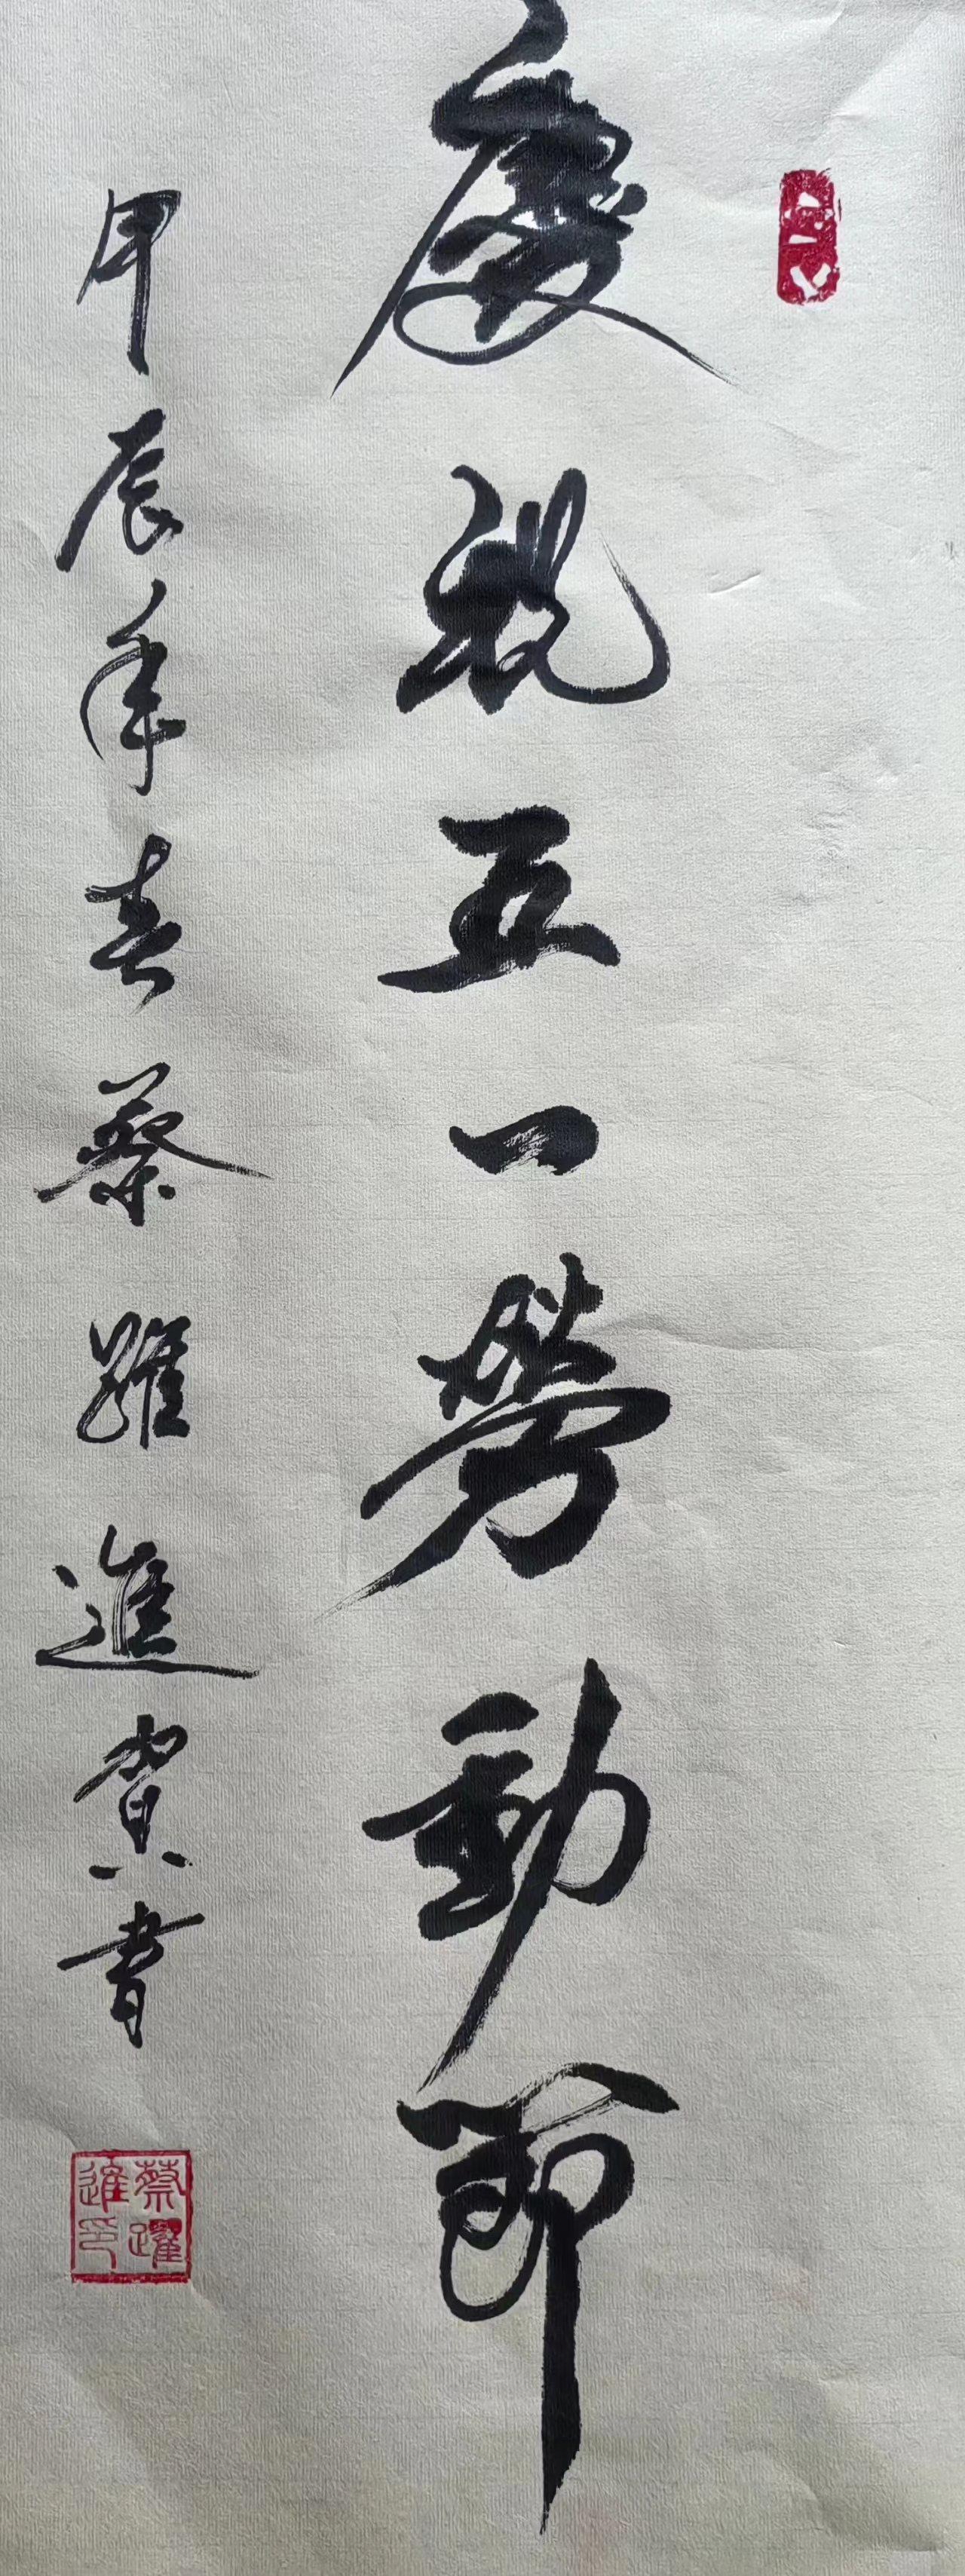 慶祝五一勞動節
甲辰年春蔡躍進賀書
蔡躍進印